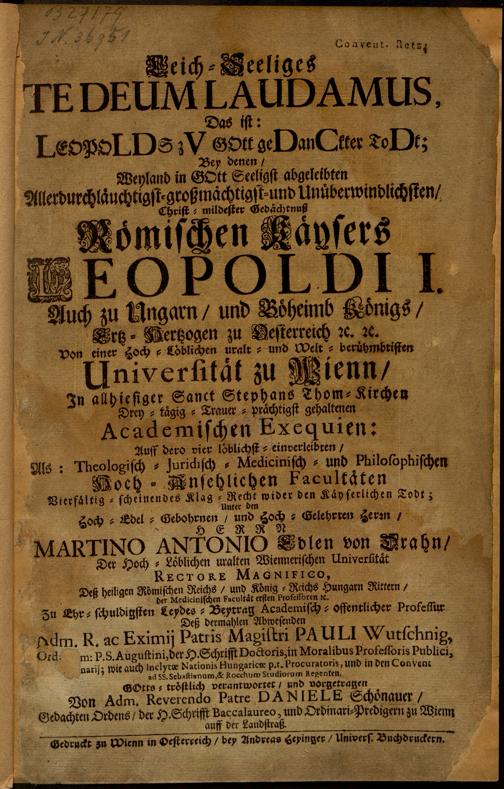 1327179
J.N. 36951
Convent. Retz,
Leich-Seeliges
TE DEUM LAUDAMUS,
Das ist:
LEOPOLDS zV GOtt geDanCkter ToDt;
Bey denen /
Weyland in GOtt Seeligst abgeleibten
Allerdurchläuchtigst-großmächtigst-und Unüberwindlichsten /
Christ-mildester Gedächtnuß
Römischen Käysers
LEOPOLDI I.
Auch zu Ungarn / und Böheimb Königs /
Ertz-Hertzogen zu Oesterreich ꝛc. ꝛc.
Von einer Hoch-Löblichen uralt-und Welt-berühmbtisten
Universität zu Wienn /
In allhiesiger Sanct Stephans Thom-Kirchen
Drey-tägig-Trauer-prächtigst gehaltenen
Academischen Exequien:
Auff dero vier löblichst-einverleibten /
Als: Theologisch-Juridisch-Medicinisch-und Philosophischen
Hoch-Ansehlichen Facultäten
Vierfältig-scheinendes Klag-Recht wider den Käyserlichen Todt;
Unter den
Hoch-Edel-Gebohrnen / und Hoch-Gelehrten Herrn /
HERRN
MARTINO ANTONIO Edlen von Krahn /
Der Hoch-Löblichen uralten Wiennerischen Universität
RECTORE MAGNIFICO,
Deß heiligen Römischen Reichs / und König-Reichs Hungarn Rittern /
der Medicinischen Facultät ersten Professoren ꝛc.
Zu Ehr-schuldigsten Leydes-Beytrag Academisch-offentlicher Professur
Deß dermahlen Abwesenden
Adm. R. ac Eximij Patris Magistri PAULI Wutschnig,
Ord: m: P.S. Augustini, der H. Schrifft Doctoris, in Moralibus Professoris Publici,
narij; wie auch Inclytæ Nationis Hungaricæ p.t. Procuratoris, und in den Convent
ad SS. Sebastianum, & Rochum Studiorum Regenten.
GOtts-tröstlich verantwortet / und vorgetragen
Von Adm. Reverendo Patre DANIELE Schönauer /
Gedachten Ordens / der H. Schrifft Baccalaureo, und Ordinari-Predigern zu Wienn
auff der Landstraß.
Gedruckt zu Wienn in Oesterreich / bey Andreas Heyinger / Univers. Buchdruckern.